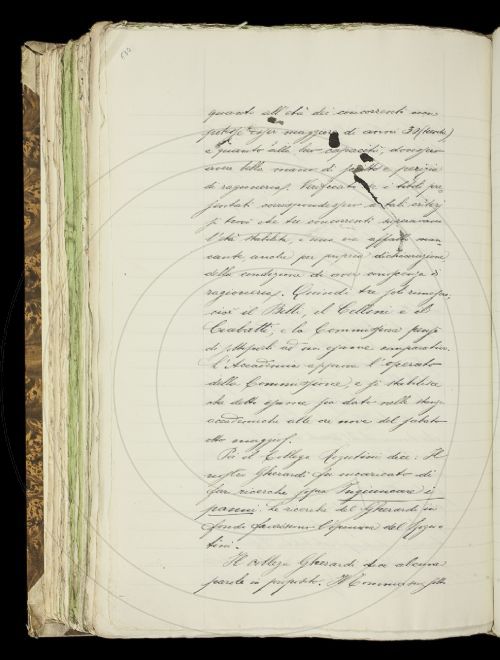 quanto all'età dei concorrenti non
potesse esser maggiore di anni 30 (trenta)
e quanto alla loro capacità, dovessero
avere bella mano di scritto e perizia
di ragioneria. Verificato se i titoli pre
sentati corrispondessero a tali criterj
si trovò che tre concorrenti superavano
l'età stabilita, e uno era affatto man
cante anche per propria dichiarazione
della condizione di aver conoscenza di
ragioneria. Quindi tre soli rimasero,
cioè il Belli, il Celloni e il
Ciabatti, e la Commissione pensò
di sottoporli ad un esame comparativo.
L'Accademia approva l'operato
della Commissione, e si stabilisce
che detto esame sia dato nelle stanze
accademiche alle ore nove del sabato
otto maggio.
Poi il Collega Agostini dice: Il
nostro Gherardi fu incaricato di
far ricerche sopra
panni. Le ricerche del Gherardi in
fondo favoriscono l'opinione del Agos
tini.
Il collega Gherardi dice alcune
parole in proposito. Il